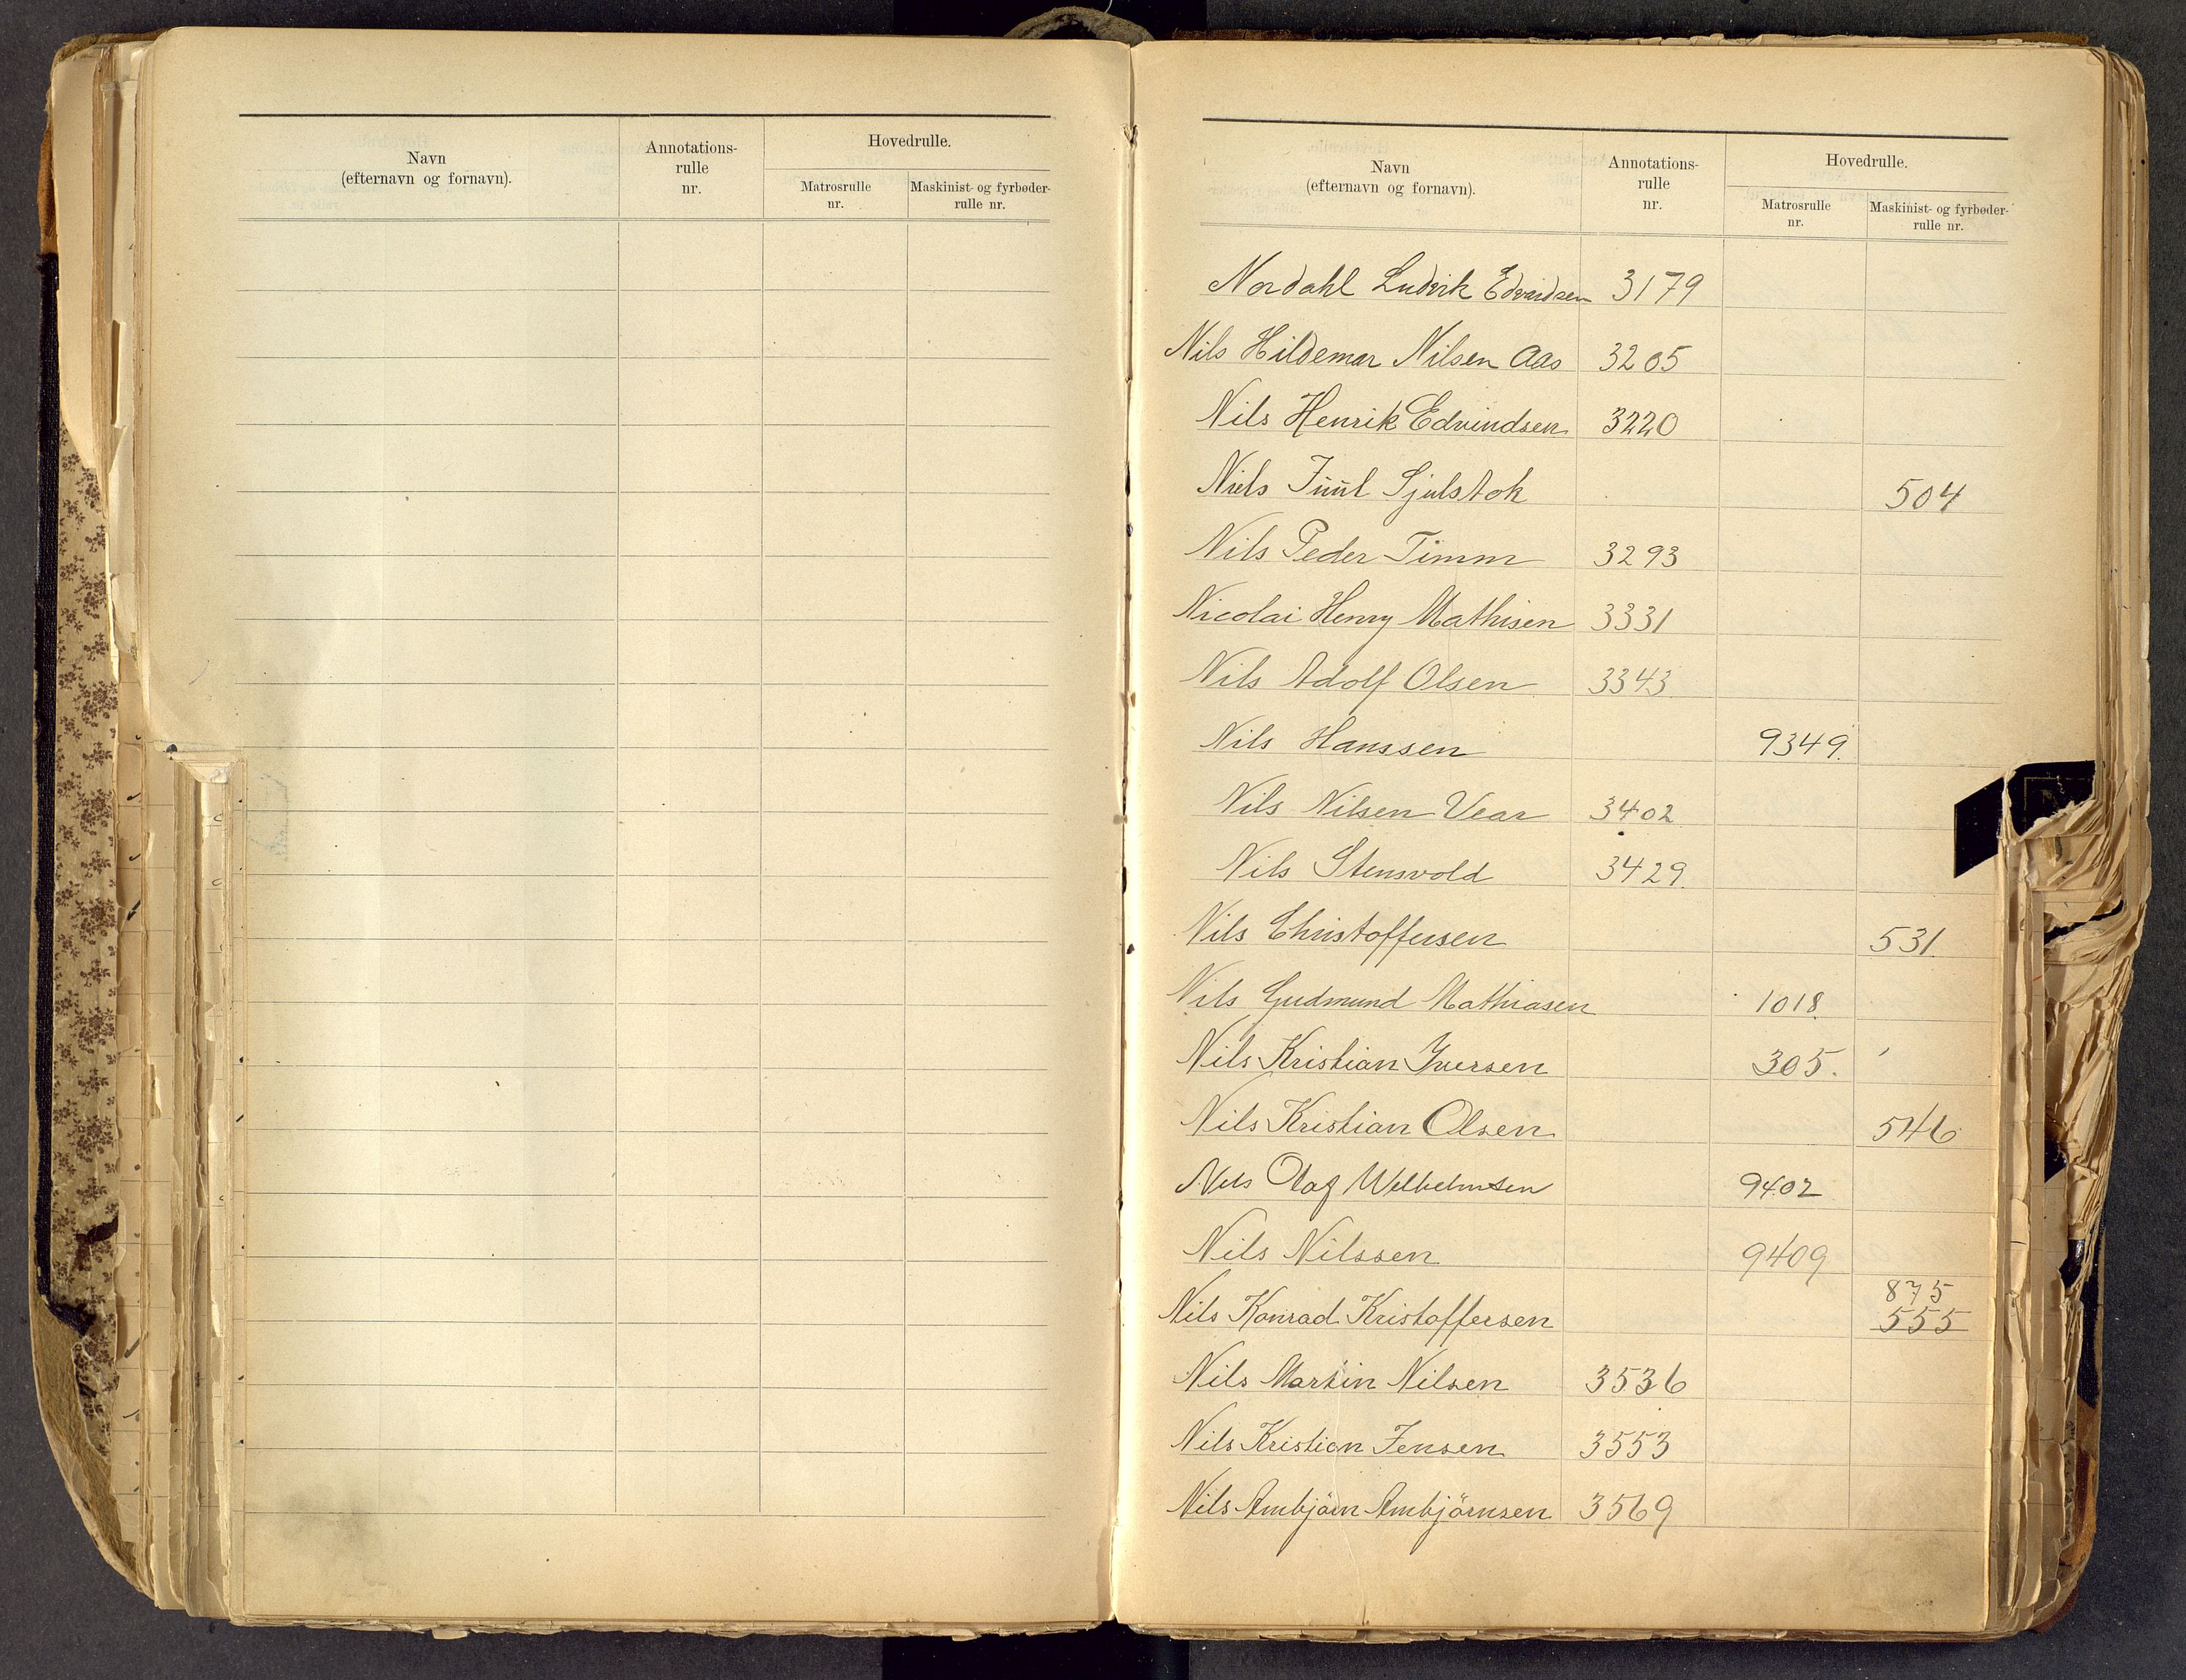 Navn
(efternavn og fornavn).
Annotations-
rulle
nr.
Hovedrulle.
Matrosrulle
nr.
Maskinist- og fyrbøder-
rulle nr.
Navn
(efternavn og fornavn).
Annotations-
rulle
nr.
Hovedrulle.
Matrosrulle
nr.
Maskinist- og fyrbøder-
rulle nr.
Nordahl Ludvik Edvardsen 3179
Nils Hildemar Nilsen Aas 3205
Nils Henrik Edvindsen 3220
Niels Juul Sjulstok 504
Nils Peder Timm 3293
Nicolai Henry Mathisen 3331
Nils Adolf Olsen 3343
Nils Hanssen 9349.
Nils Nilsen Vear 3402
Nils Stensvold 3429.
Nils Christoffersen 531.
Nils Gudmund Mathiasen 1018.
Nils Kristian Iversen 305.
Nils Kristian Olsen 546
Nils Olaf Wilhelmsen 9402
Nils Nilssen 9409
875
Nils Konrad Kristoffersen 555
Nils Martin Nilsen 3536
Nils Kristian Jensen 3553
Nils Ambjörn Ambjörnsen 3569